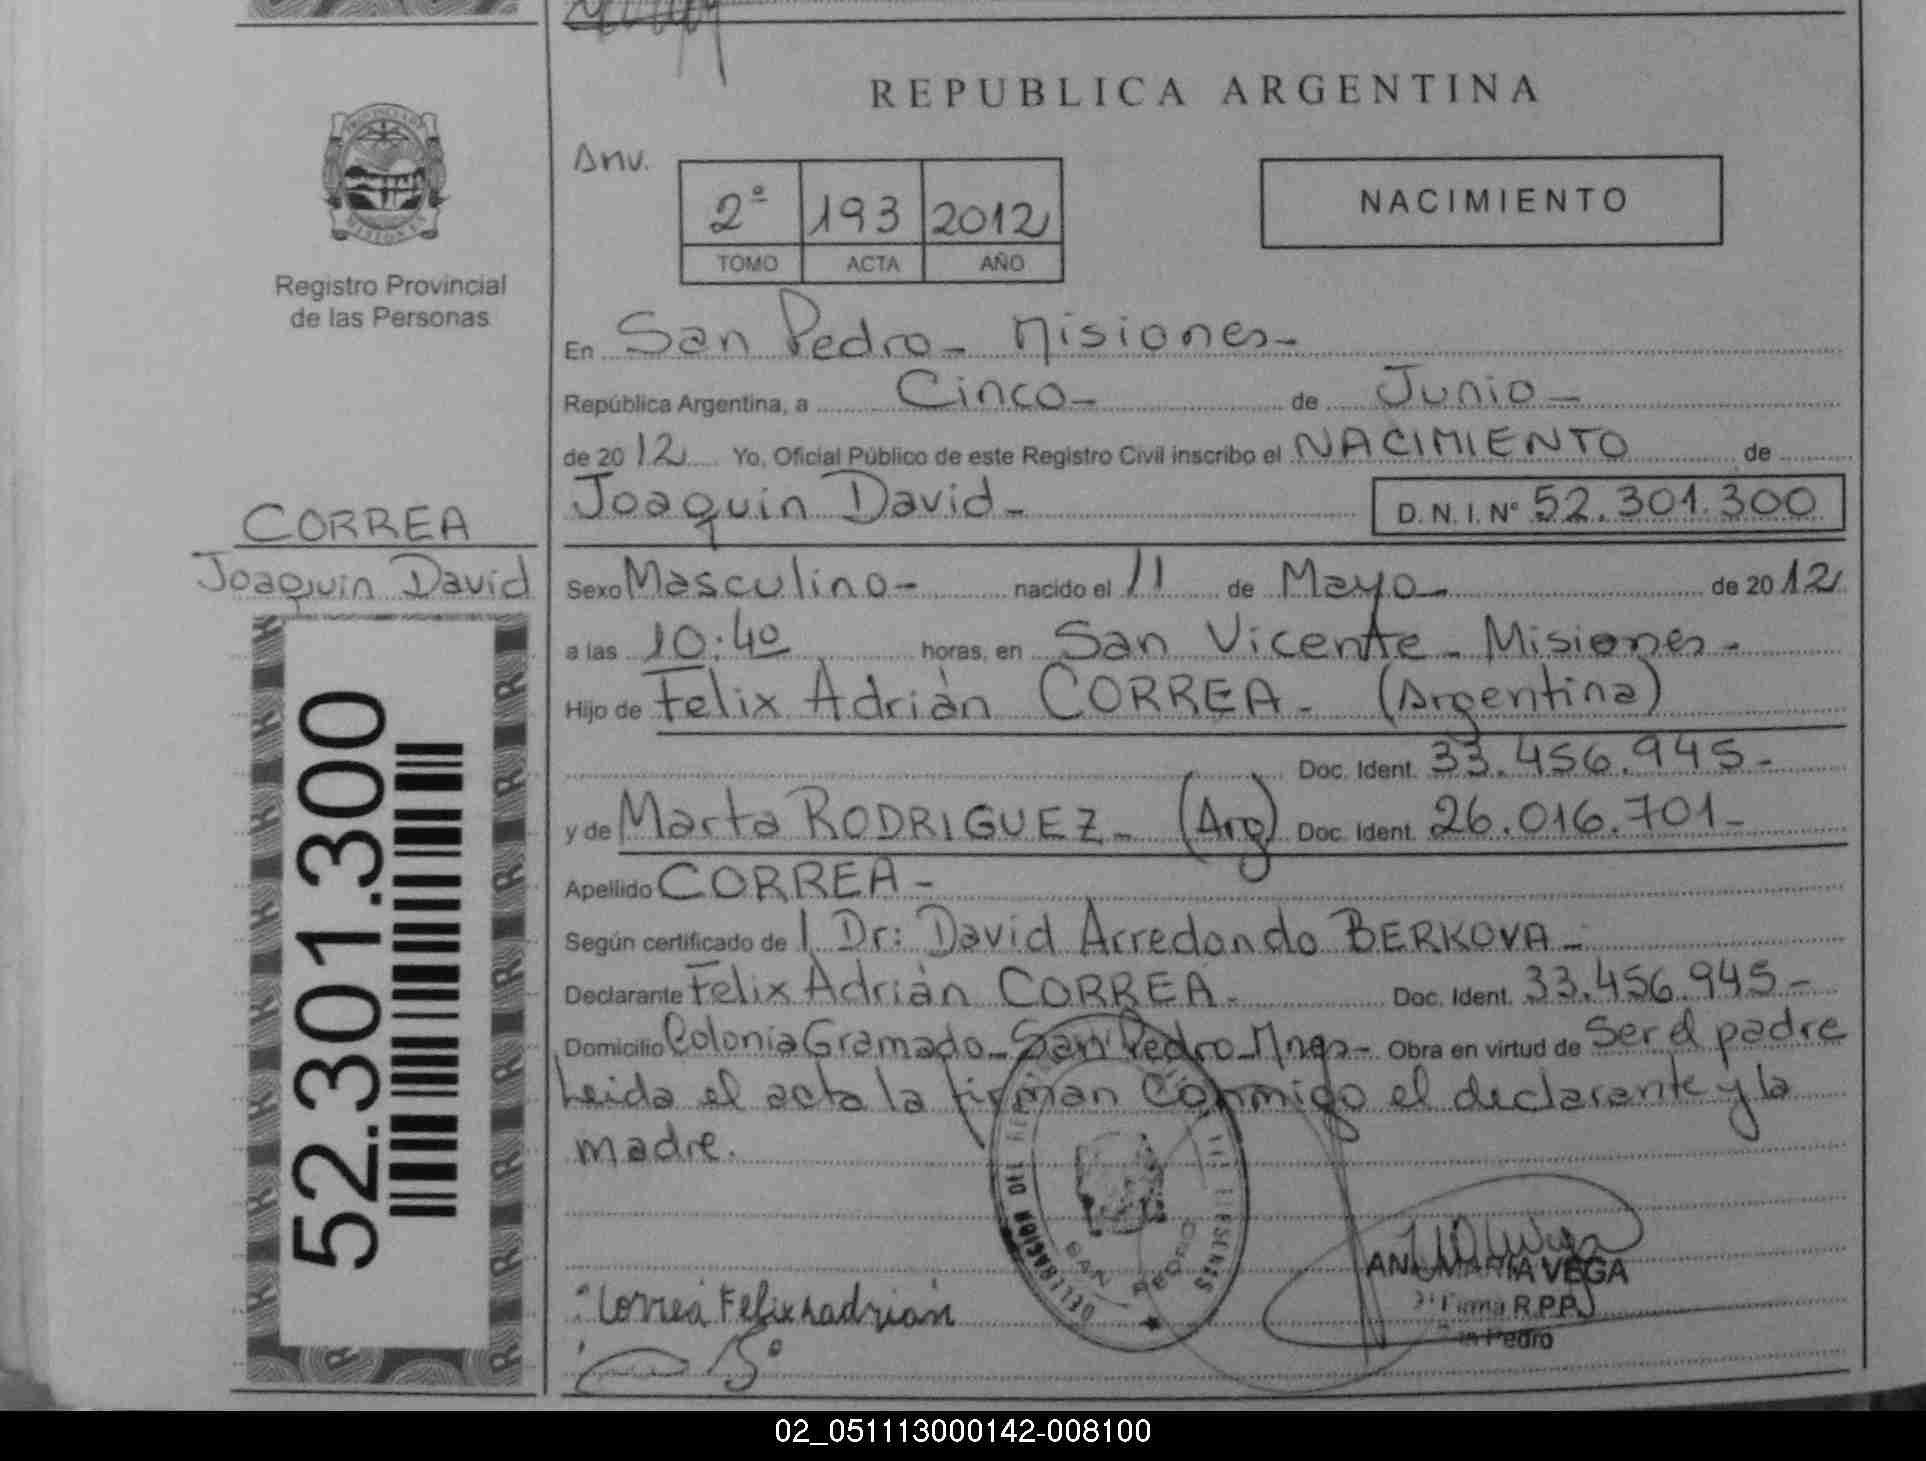 REPUBLICA ARGENTINA
PROVINCIA DE
MISIONES
Registro Provincial
de las Personas
Anv.
2º 193 2012
TOMO ACTA AÑO
NACIMIENTO
En San Pedro - Misiones -
República Argentina, a Cinco - de Junio -
de 2012 Yo, Oficial Público de este Registro Civil inscribo el NACIMIENTO de
Joaquin David - D.N.I. Nº 52.301.300
CORREA
Joaquin David
Sexo Masculino - nacido el 11 de Mayo - de 2012
a las 10:40 horas, en San Vicente - Misiones -
Hijo de Felix Adrián CORREA - (Argentina)
Doc. Ident. 33.456.945 -
y de Marta RODRIGUEZ - (Arg) Doc. Ident. 26.016.701 -
Apellido CORREA -
Según certificado de 1 Dr: David Arredondo BERKOVA -
Declarante Felix Adrián CORREA - Doc. Ident. 33.456.945 -
Domicilio Colonia Gramado - San Pedro - Mnes - Obra en virtud de Ser el padre
Leida el acta la firman conmigo el declarante y la
madre.
52.301.300
DELEGACION DEL
SAN PEDRO
ANA MARIA VEGA
Firma R.P.P.
Pedro
Correa Felix hadrian
02_051113000142-008100